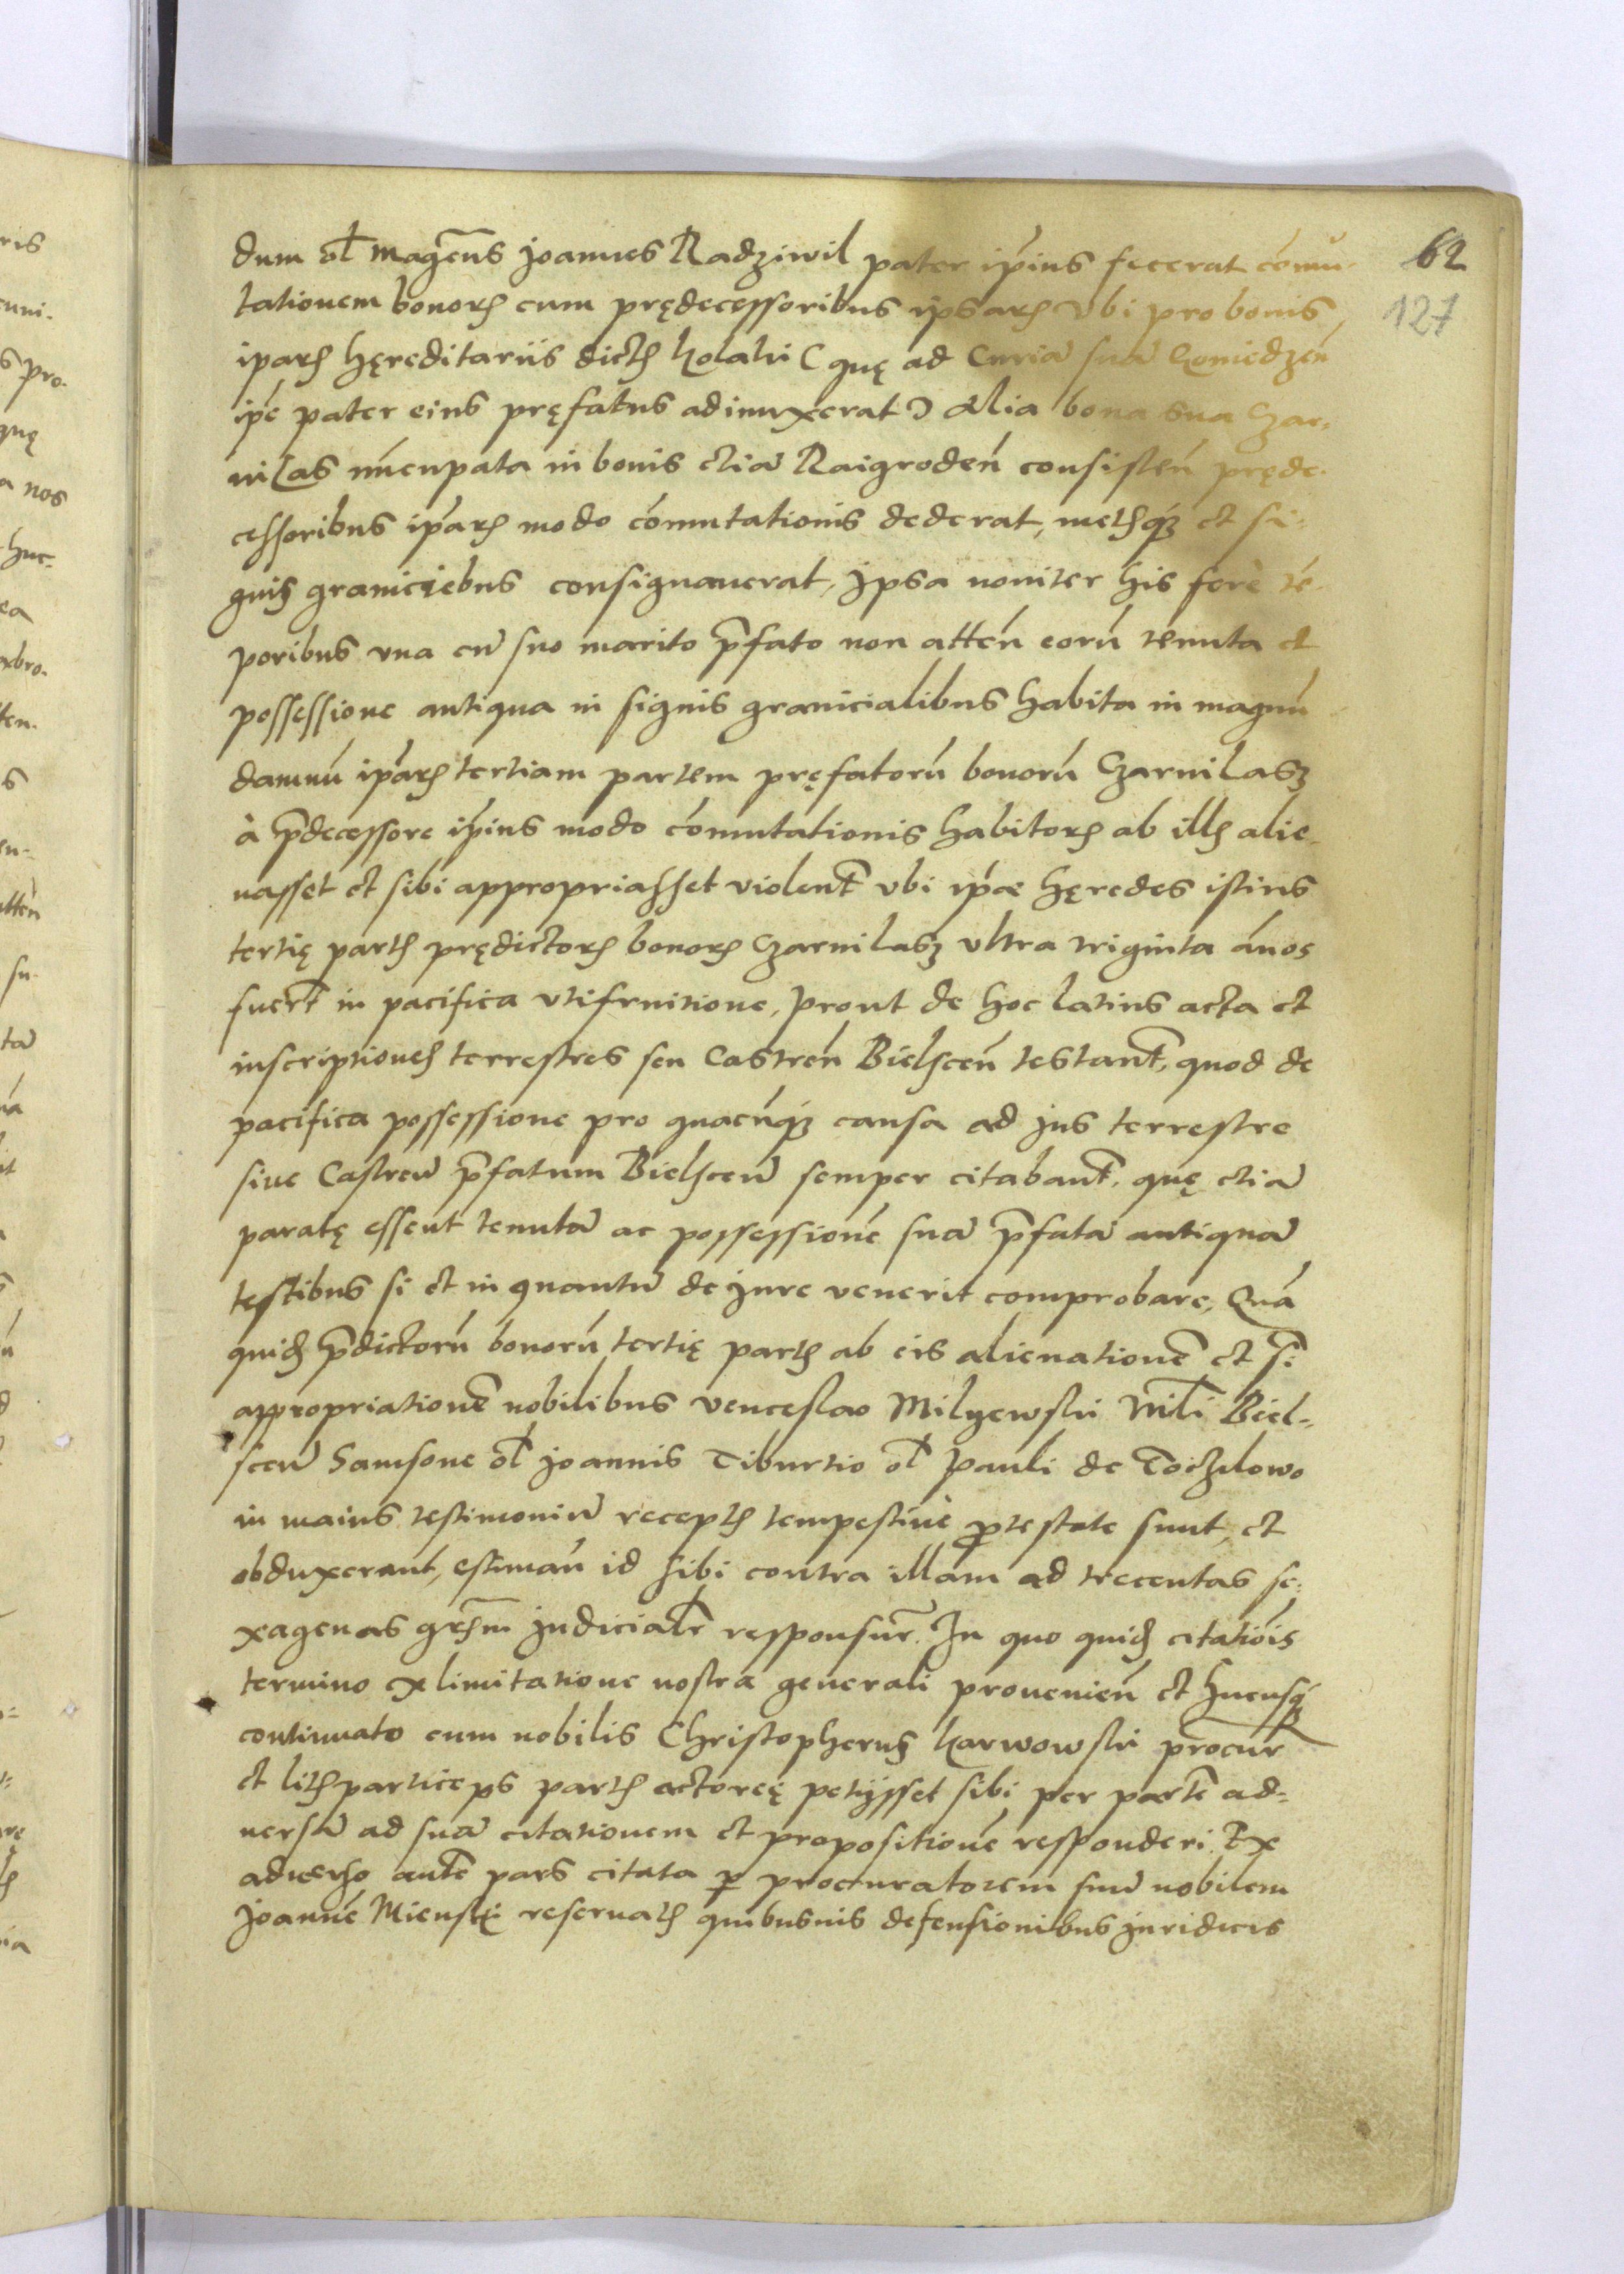 62
127
dum ol magcus Joannes Radziwil pater ipius fecerat comu-
tationem bonorꝝ cum prędecessoribus ipsarꝝ vbi pro bonis
iparꝝ hęreditariis dictꝭ Kolaki (quę ad Curiā suā Goniedzen
ipe pater eius pręfatus adiunxerat) Alia bona sua Czar-
nilas nūcupata in bonis etiā Raigroden consisten pręde-
cessoribus iparꝝ modo comutationis dederat, metisqʒ et si-
gnis graniciebus consignauerat, Ipsa nouiter his ferè tē-
poribus vna cū suo marito p̄fato non atten eorū tenuta et
possessione antiqua in signis granicialibus habita in magnū
damnū iparꝝ tertiam partem pręfatorū bonorū Czarnilasz
à p̄decessore ipius modo comutationis habitorꝝ ab illꝭ alie-
nasset et sibi appropriasset violent̄ vbi ipæ hęredes istius
tertię partꝭ prędictorꝝ bonorꝝ Czarnilasz vltra triginta ānos
fuert̄ in pacifica vtifruitione, Prout de hoc latius acta et
inscriptiones terrestres seu Castren Bielscen testant̄, quod de
pacifica possessione pro quacūqʒ causa ad Jus terrestre
siue Castren p̄fatum Bielscen semper citabant̄, quę etiā
paratę essent tenutā ac possessionē suā p̄fatā antiquā
testibus si et in quantū de Jure venerit comprobare, Quā
quidꝫ p̄dictorū bonorū tertię partꝭ ab eis alienationē et sꝫ
appropriationē nobilibus venceslao Milyewski Mīli Biel-
scen Samsone ol Joannis Tiburtio ol Pauli de Toczilowo
in maius testimoniū receptꝭ tempestiuè ꝓtestate sunt, et
obduxerunt, estiman id sibi contra illam ad trecentas se-
xagenas grꝭm Judicialr responsur. In quo quidꝫ citatiois
termino ex limitatione nostra generali prouenien et hucusqʒ
continuato cum nobilis Christopherus Karwowski procur
et litꝭ particeps partꝭ actoreę petijsset sibi per partē ad-
uersā ad suā citationem et propositionē responderi. Ex
aduerso autē pars citata ꝑ procuratorem suū nobilem
Joannē Mienski reseruatꝭ quibusuis defensionibus Juridicis